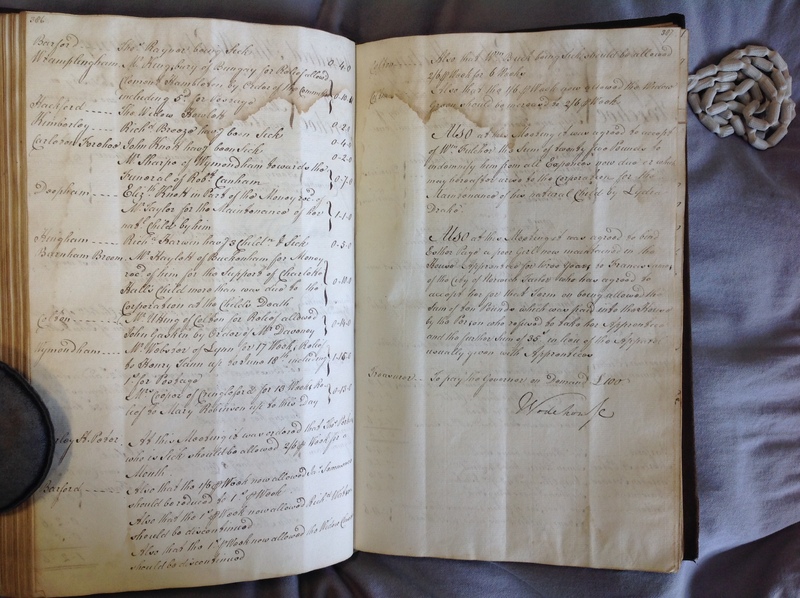 386
Barford Thos. Raynor being Sick 0-4-0
Wramplingham Mr. Kingsbury of Bungay for Relief allowd
by Order of the Committee
including 5s. for 0-10-
Hackford The Widow
Kimberley Richd. Breeze havg been Sick 0-2-
Carleton Forehoe John Knott havg been Sick 0-4-0
Mr. Sharpe of Wymondham towards the 0-2-0
Funeral of Robt. Canham 0-7-0
Deopham Elizth. Knott in Part of the Money recd. of
Mr. Taylor for the Maintenance of her 1-1-0
natl. Child by him
Hingham Richd. Harwin hav. 3 Childn. & Sick 0-3-0
Barnham Broom Mr. Haylott of Buckenham for Money
recd. of him for the Support of Charlotte
Hall's Child more than was due to the 0-10-0
Corporation at the Child's Death
Colton Mr. of Colton for Relief allowed
John by Order of Mr. Daveney
Wymondham Mr. Webster of Lynn for 17 Weeks Relief
to Henry up to June 18th. including
1s. for Postage
Mr. Cooper of Cringleford for 13 Weeks Re
lief to Mary Robinson up to this Day
At this Meeting it was ordered that
who is Sick should be allowed 2/6 ⅌ Week for a
Month
Barford Also that the 1/6 ⅌ Week now allowed
should be reduced to 1s. ⅌ Week
Also that the 1s. ⅌ Week now allowed Richd.
should be discontinued
Also that the 1s. ⅌ Week now allowed the Widow
should be discontinued
387
Also that Wm. being Sick should be allowed
2/6 ⅌ Week for 6 Weeks
Also that the 1/6 ⅌ Week now allowed the Widow
Green should be increased to 2/6 ⅌ Week
Also at this Meeting it was agreed to accept
of Wm. the Sum of twenty two Pounds to
indemnify him from all Expences now due or which
may hereafter arise to the Corporation for the
Maintenance of his natural Child by Lydia
Drake
Also at this Meeting it was agreed to bind
Esther Page a poor Girl now maintained in the
House Apprentice for three Years to Francis
of the City of Norwich Taylor who has agreed to
accept her for that Term on being allowed the
Sum of ten Pounds which was paid into the House
by the Person who refused to take her Apprentice
and the further Sum of 35s. in lieu of the Apparel
usually given with Apprentices
Treasurer To pay the Governor on Demand £100
Wodehouse